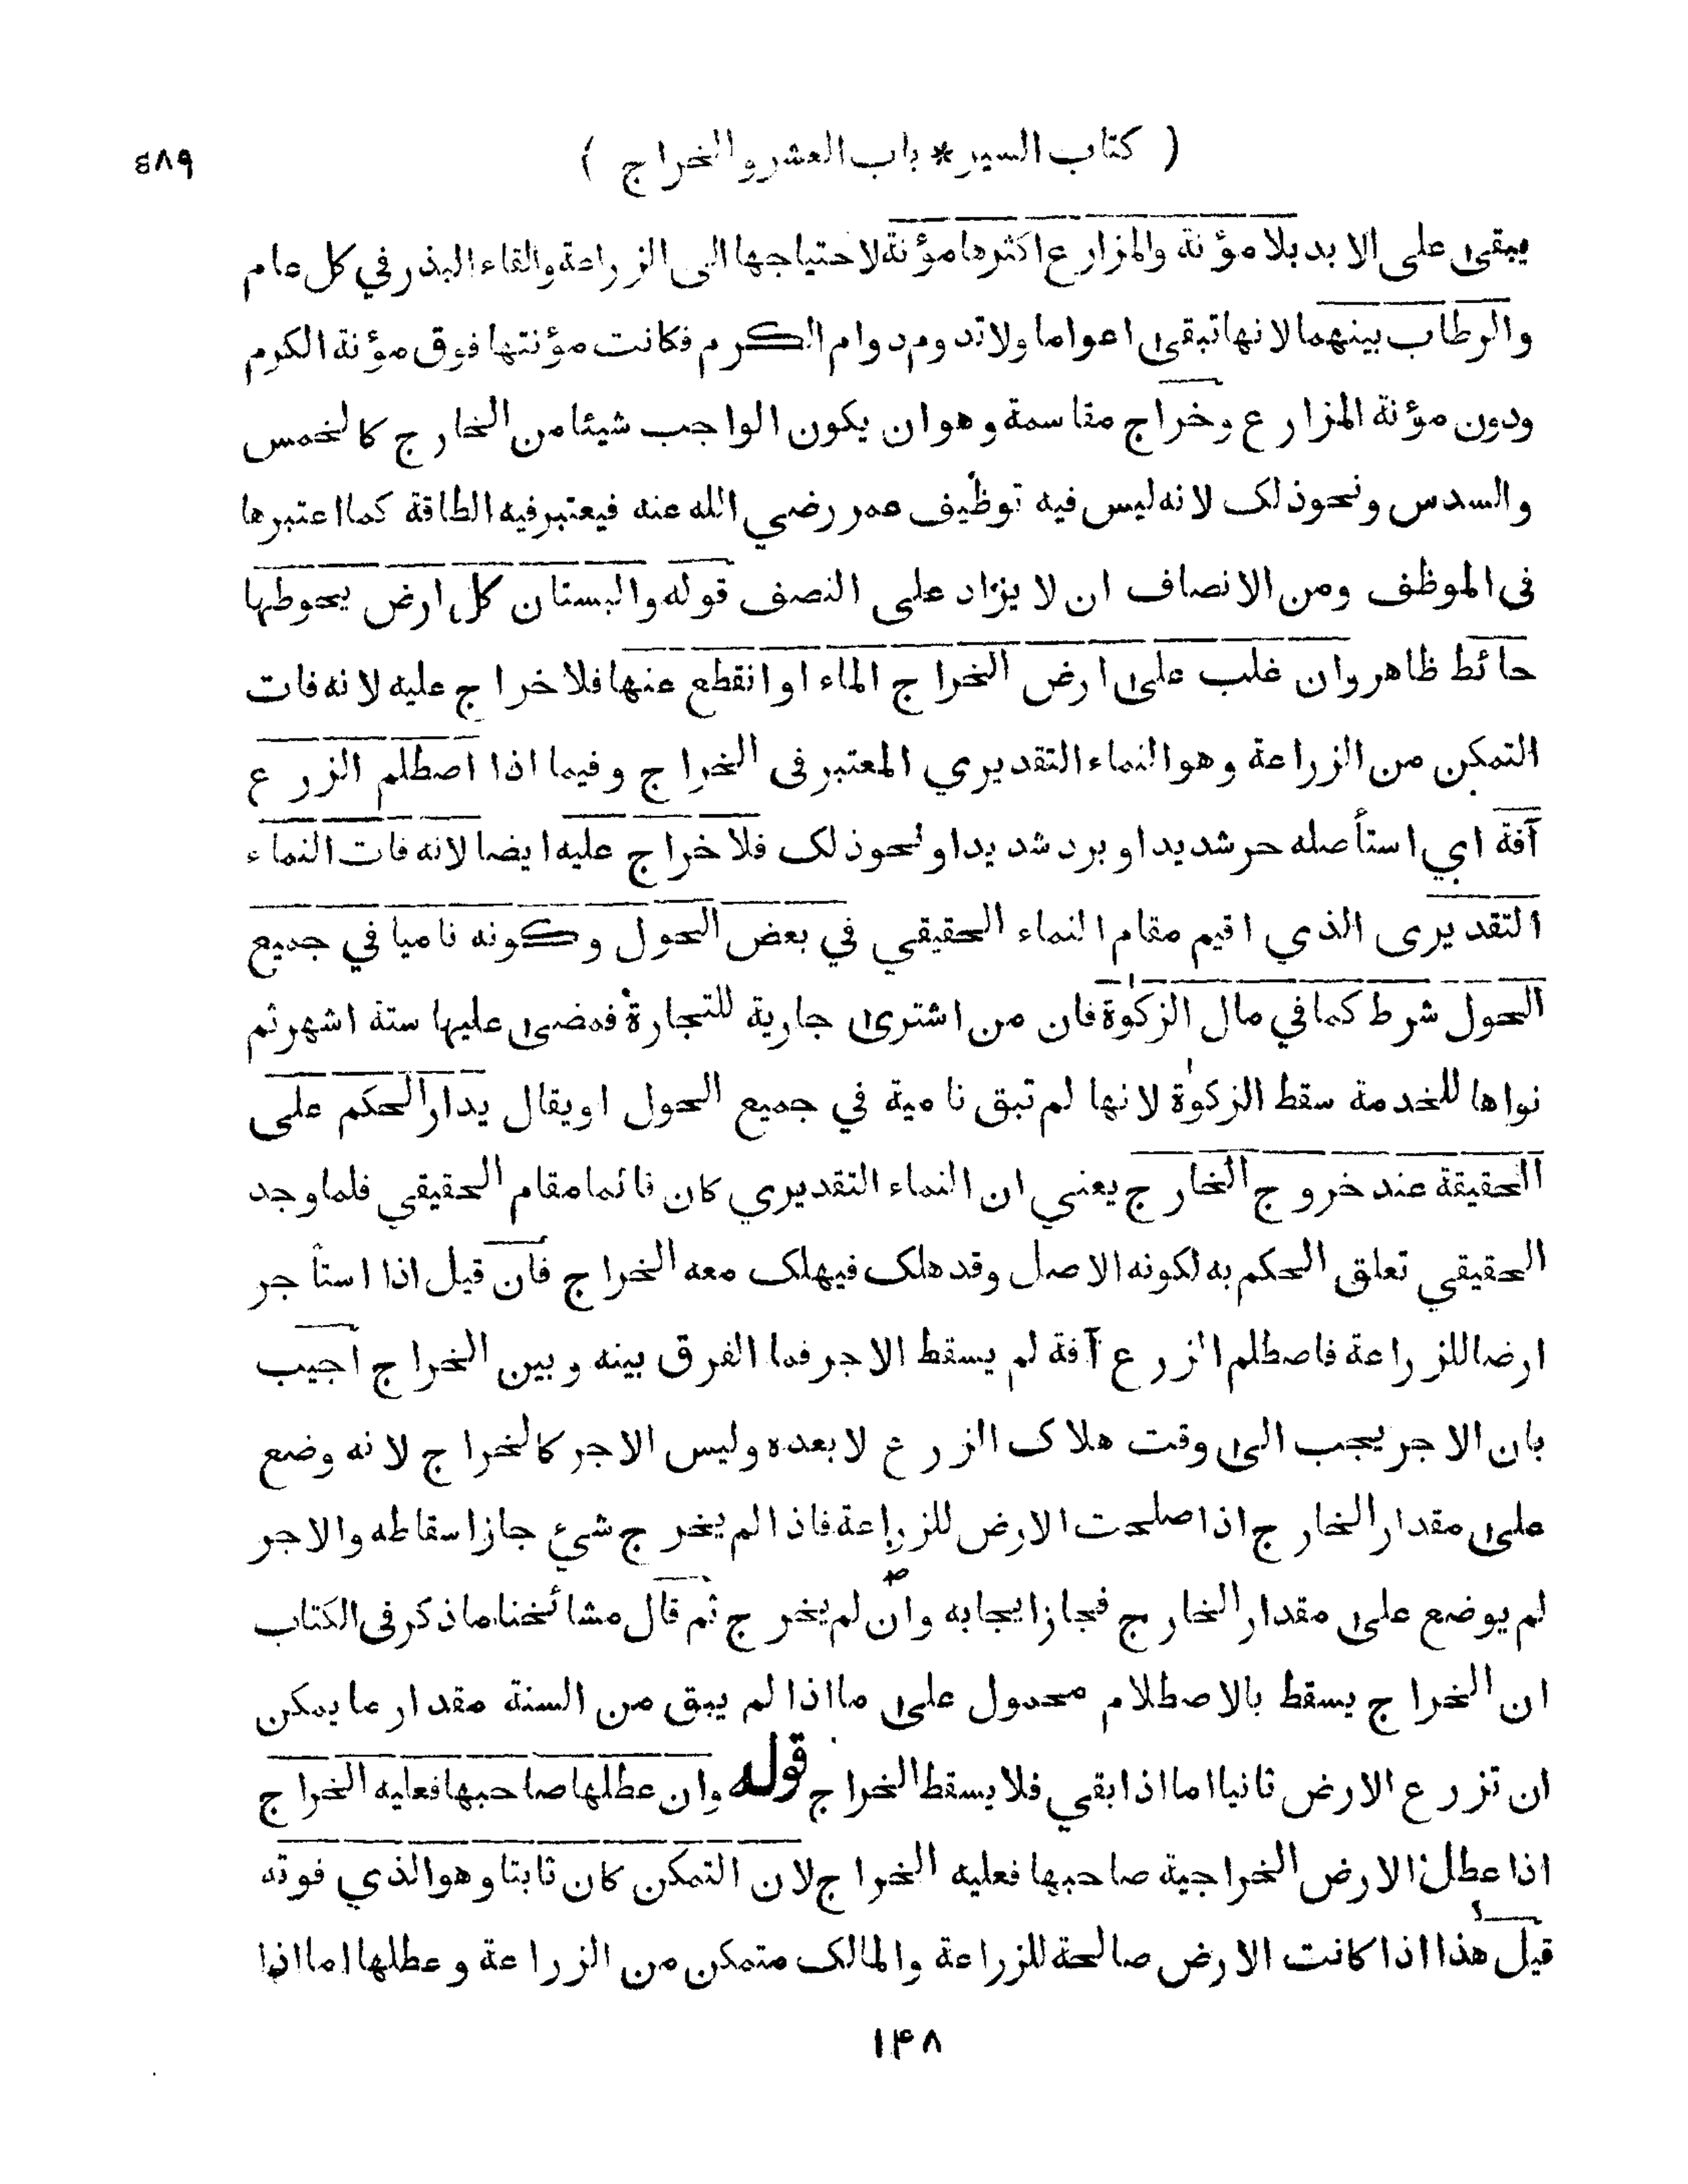 ( كتاب السير * باب العشر والخراج )
يبقى على الابد بلا مؤنة والمزارع اكثرها مؤنة لاحتياجها الى الزراعة والقاء البذر في كل عام
والرطاب بينهما لانها تبقى اعواما ولا تدوم دوام الكرم فكانت مؤنتها فوق مؤنة الكرم
ودون مؤنة المزارع وخراج مقاسمة وهو ان يكون الواجب شيئا من الخارج كالخمس
والسدس ونحو ذلك لانه ليس فيه توظيف عمر رضي الله عنه فيعتبر فيه الطاقة كما اعتبرها
فى الموظف ومن الانصاف ان لا يزاد على النصف قوله والبستان كل ارض يحوطها
حائط ظاهر وان غلب على ارض الخراج الماء او انقطع عنها فلا خراج عليه لانه فات
التمكن من الزراعة وهو النماء التقديري المعتبر فى الخراج وفيما اذا اصطلم الزرع
آفة اي استأصله حر شديد او برد شديد او نحو ذلك فلا خراج عليه ايضا لانه فات النماء
التقديرى الذي اقيم مقام النماء الحقيقي في بعض الحول وكونه ناميا في جميع
الحول شرط كما في مال الزكوة فان من اشترى جارية للتجارة فمضى عليها ستة اشهر ثم
نواها للخدمة سقط الزكوة لانها لم تبق نامية في جميع الحول او يقال يدار الحكم على
الحقيقة عند خروج الخارج يعني ان النماء التقديري كان قائما مقام الحقيقي فلما وجد
الحقيقي تعلق الحكم به لكونه الاصل وقد هلك فيهلك معه الخراج فان قيل اذا استأجر
ارضا للزراعة فاصطلم الزرع آفة لم يسقط الاجر فما الفرق بينه وبين الخراج اجيب
بان الاجر يجب الى وقت هلاك الزرع لا بعده وليس الاجر كالخراج لانه وضع
على مقدار الخارج اذا صلحت الارض للزراعة فاذا لم يخرج شيئ جاز اسقاطه والاجر
لم يوضع على مقدار الخارج فجاز ايجابه وان لم يخرج ثم قال مشائخنا ما ذكر فى الكتاب
ان الخراج يسقط بالاصطلام محمول على ما اذا لم يبق من السنة مقدار ما يمكن
ان تزرع الارض ثانيا اما اذا بقي فلا يسقط الخراج قوله وان عطلها صاحبها فعليه الخراج
اذا عطل الارض الخراجية صاحبها فعليه الخراج لان التمكن كان ثابتا وهو الذي فوته
قيل هذا اذا كانت الارض صالحة للزراعة والمالك متمكن من الزراعة وعطلها اما اذا
١٤٨